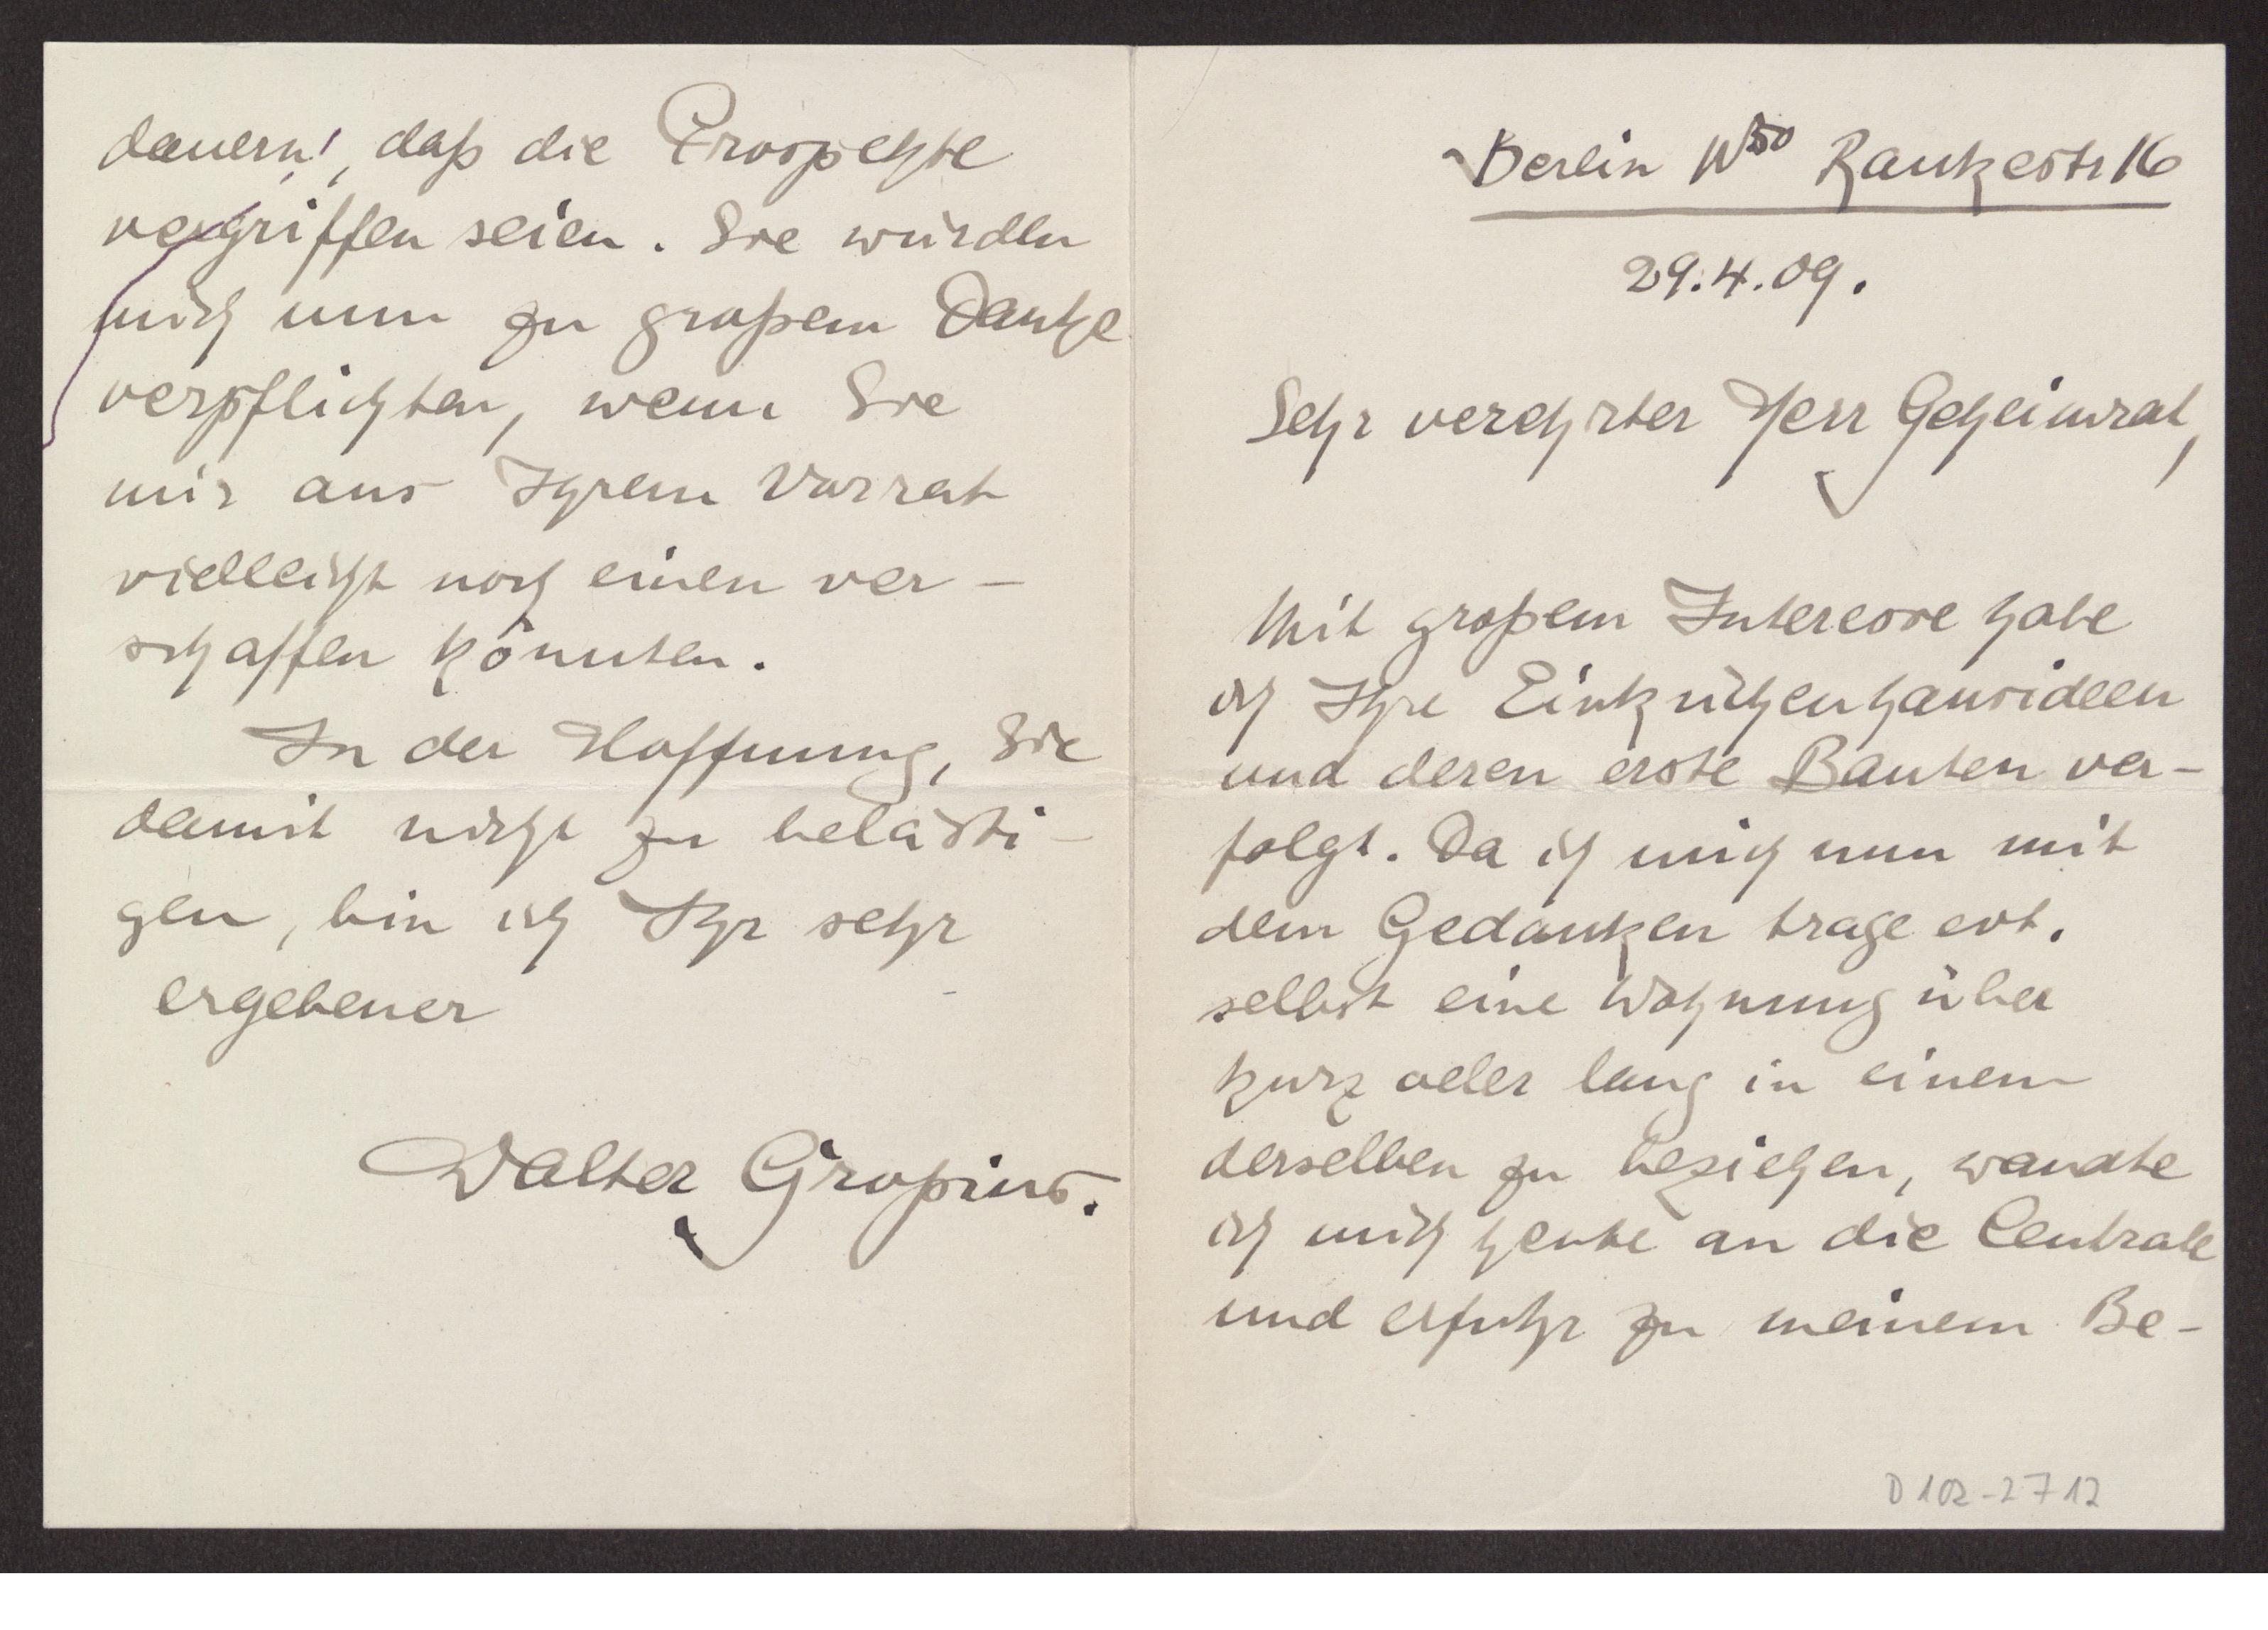 Berlin W50 Rankestr 16
29.4.09.
Sehr verehrter Herr Geheimrat,
Mit großem Interesse habe
ich Ihre Einküchenhausideen
und deren erste Bauten ver-
folgt. Da ich mich nun mit
dem Gedanken trage evt.
selbst eine Wohnung über
kurz oder lang in einem
derselben zu beziehen, wandte
ich mich heute an die Centrale
und erfuhr zu meinem Be-
D 102-2712
dauern, daß die Prospekte
vergriffen seien. Sie würden
mich nun zu großem Danke
verpflichten, wenn Sie
mir aus Ihrem Vorrat
vielleicht noch einen ver-
schaffen könnten.
In der Hoffnung, Sie
damit nicht zu belästi-
gen, bin ich Ihr sehr
ergebener
Walter Gropius.